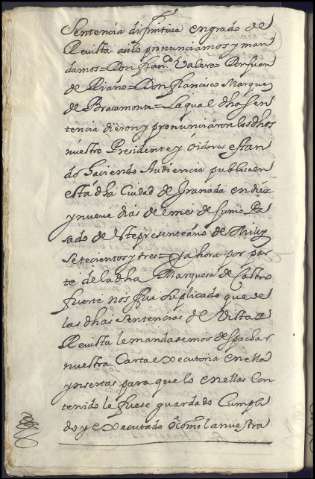 Sentencia difinitiva en grado de
Revista assi pronunciamos y man
damos = Don Juan Valero
de = Don Francisco Marques
de Bracamonte = La qual dha sen
tencia dieron y pronunciaron los dhos
nuestro Presidente y oidores estan
do haciendo Audiencia publica en
esta dha Ciudad de Granada en diez
y nueve dias de el mes de Junio pa
sado de este presente año de mil y
setecientos y tres = Y ahora por par
te de la dha Marquesa de Castro
fuerte nos fue suplicado que de
las dhas sentencias de Vista y
Revista le mandasemos despachar
nuestra Carta executoria en ella
ynsertas para que lo en ellas con
tenido le fuese guardado Cumpli
do y executado o Como la nuestra